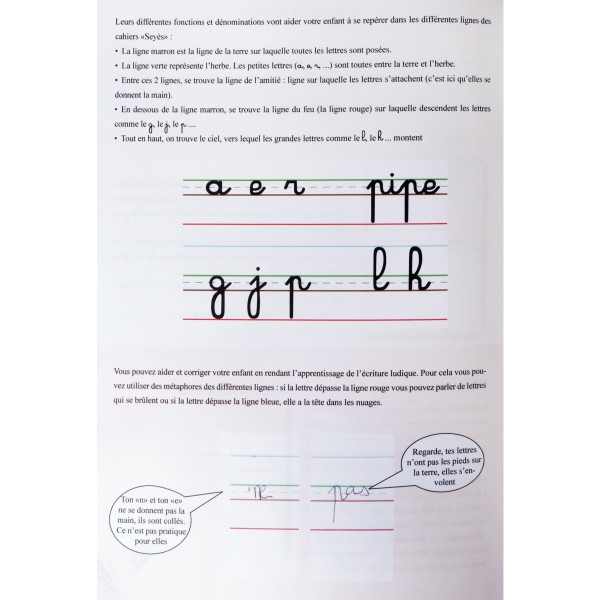 Leurs différentes fonctions et dénominations vont aider votre enfant à se repérer dans les différentes lignes des
cahiers «Seyès» :
• La ligne marron est la ligne de la terre sur laquelle toutes les lettres sont posées.
• La ligne verte représente l'herbe. Les petites lettres (a, e, r, ...) sont toutes entre la terre et l'herbe.
• Entre ces 2 lignes, se trouve la ligne de l'amitié : ligne sur laquelle les lettres s'attachent (c'est ici qu'elles se
donnent la main).
• En dessous de la ligne marron, se trouve la ligne du feu (la ligne rouge) sur laquelle descendent les lettres
comme le g, le j, le p ....
• Tout en haut, on trouve le ciel, vers lequel les grandes lettres comme le l, le h ... montent
a e r pipe
g j p l h
Vous pouvez aider et corriger votre enfant en rendant l'apprentissage de l'écriture ludique. Pour cela vous pou-
vez utiliser des métaphores des différentes lignes : si la lettre dépasse la ligne rouge vous pouvez parler de lettres
qui se brûlent ou si la lettre dépasse la ligne bleue, elle a la tête dans les nuages.
Regarde, tes lettres
n'ont pas les pieds sur
la terre, elles s'en-
volent
ne pas
Ton «n» et ton «e»
ne se donnent pas la
main, ils sont collés.
Ce n'est pas pratique
pour elles